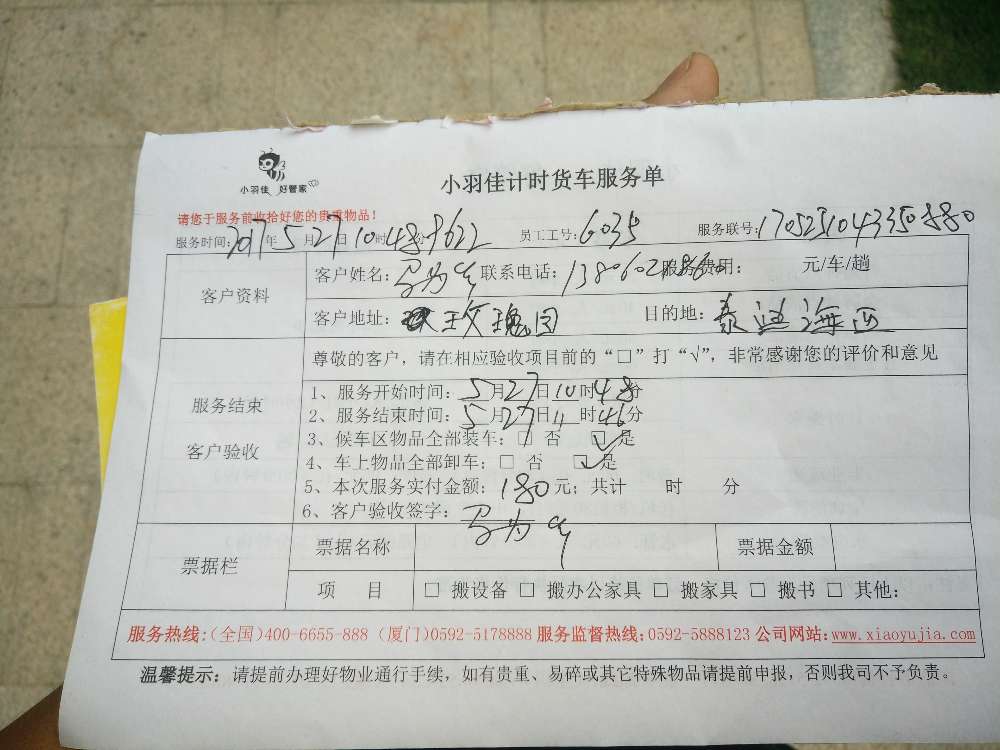 小羽佳 好管家
小羽佳计时货车服务单
请您于服务前收拾好您的贵重物品！
服务时间：2017年5月27日10时48分 员工工号：6035 服务联号：17052310433508880
客户资料 客户姓名：马为 联系电话：1380602 服务费用： 元/车/趟
客户地址：玫瑰园 目的地：泰迪海西
尊敬的客户，请在相应验收项目前的“□”打“√”，非常感谢您的评价和意见
服务结束
客户验收
1、服务开始时间：5月27日10时48分
2、服务结束时间：5月27日11时46分
3、候车区物品全部装车：□ 否 ☑是
4、车上物品全部卸车：□ 否 ☑是
5、本次服务实付金额：180元；共计 时 分
6、客户验收签字：马为
票据栏 票据名称 票据金额
项 目 □ 搬设备 □ 搬办公家具 □ 搬家具 □ 搬书 □ 其他：
服务热线：（全国）400-6655-888（厦门）0592-5178888 服务监督热线：0592-5888123 公司网站：www.xiaoyujia.com
温馨提示：请提前办理好物业通行手续，如有贵重、易碎或其它特殊物品请提前申报，否则我司不予负责。